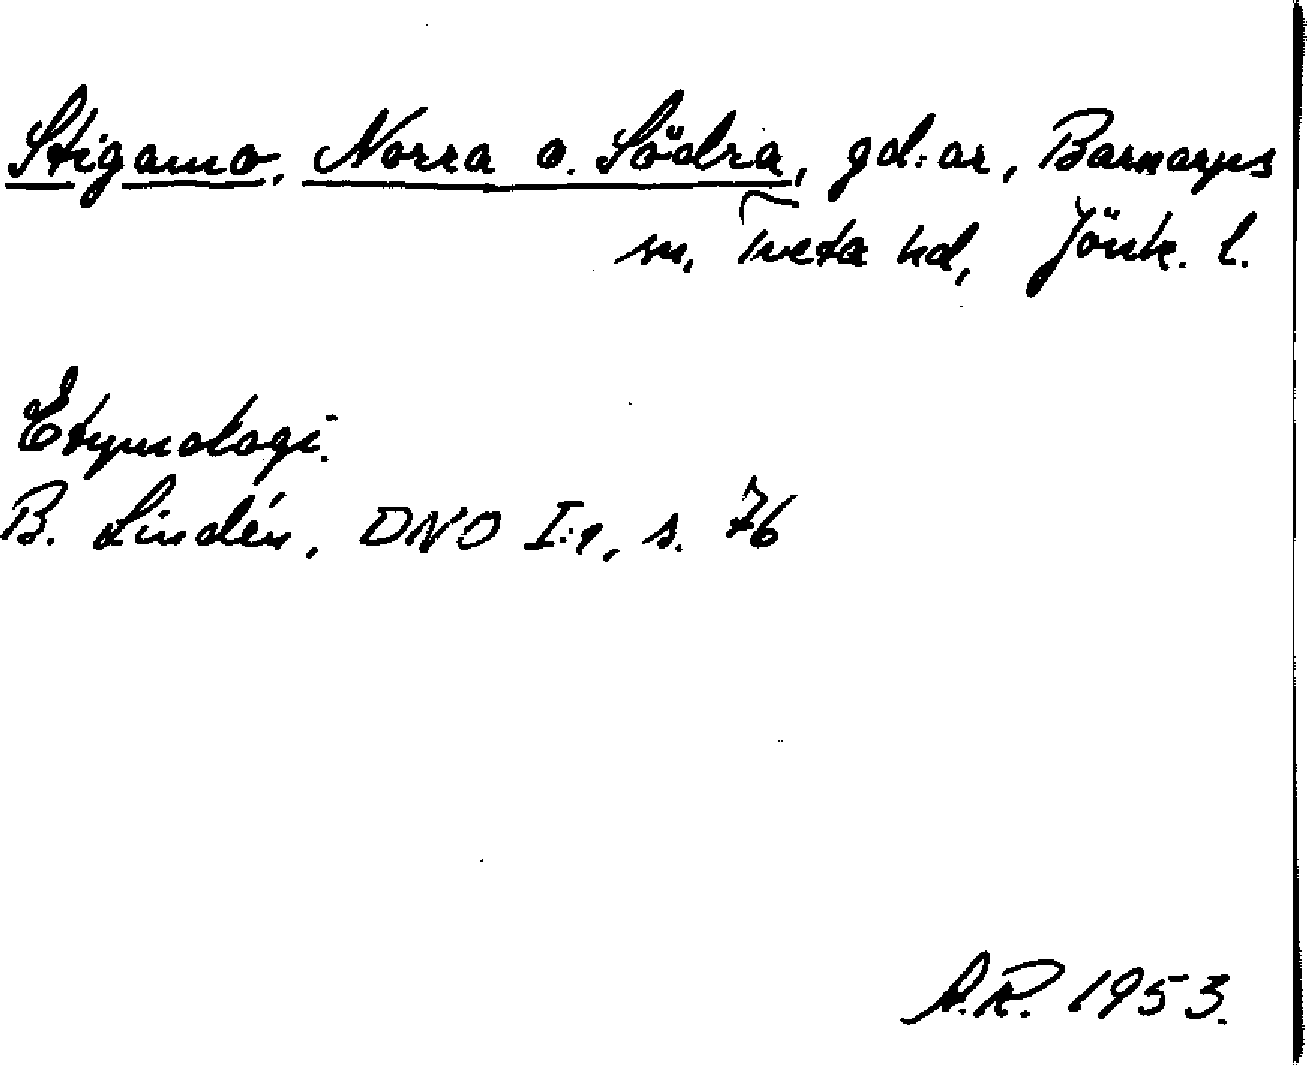 Stigamo, Norra o. Södra, gd:ar, Barnarps
sn, Tveta hd, Jönk. l.
Etymologi.
B. Lindén, DNO I:1, s. 76
A.R. 1953.